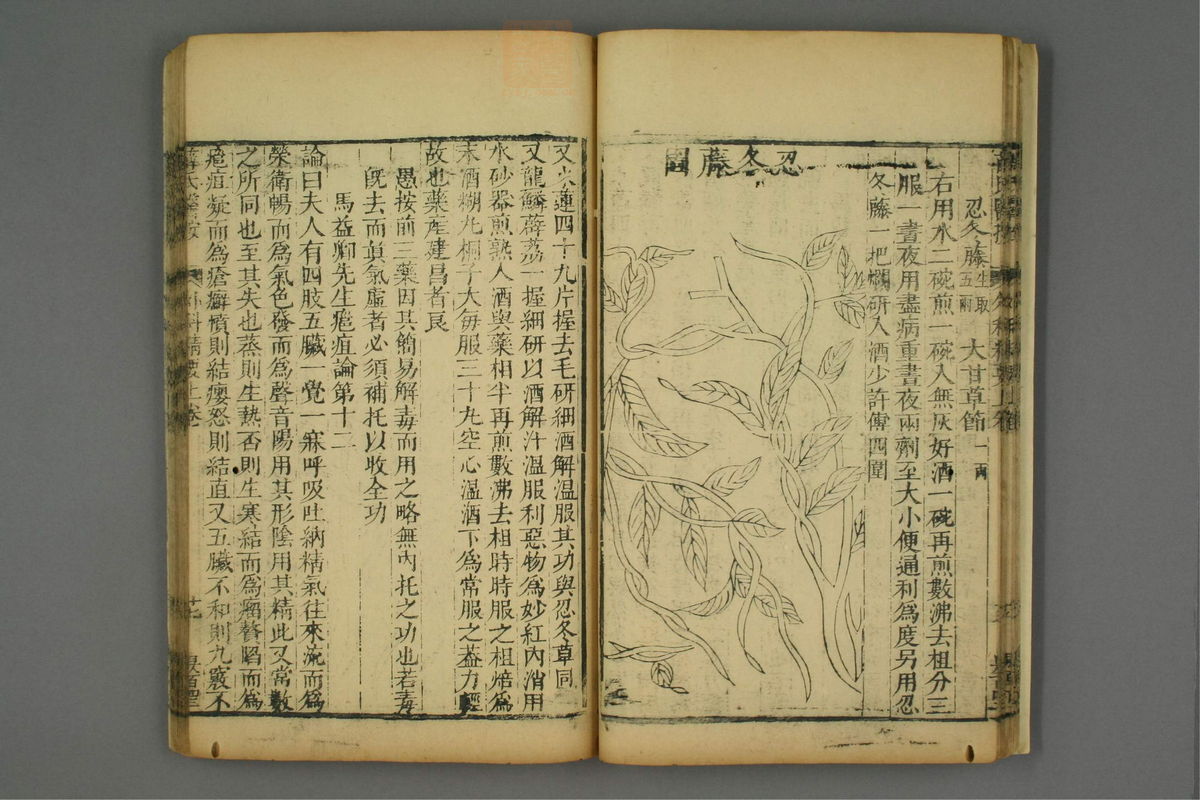 忍冬藤生取五兩　大甘草節一兩
右用水二碗煎一碗入無灰好酒一碗再煎數沸去柤分三
服一晝夜用盡病重晝夜兩劑至大小便通利為度另用忍
冬藤一把爛研入酒少許傅四圍
忍冬藤圖
又火蓮四十九片握去毛研細酒解溫服其功與忍冬草同
又龍鱗薜荔一握細研以酒解汁溫服利惡物為妙紅內消用
水砂器煎熟入酒與藥相半再煎數沸去柤時時服之柤焙為
末酒糊丸桐子大每服三十九空心溫酒下為常服之葢力輕
故也藥產建昌者良
愚按前三藥因其簡易解毒而用之略無內托之功也若毒
旣去而眞氣虛者必須補托以收全功
馬益卿先生癰疽論第十二
論曰夫人有四肢五臟一覺一寐呼吸吐納精氣往來流而為
榮衛暢而為氣色發而為聲音陽用其形陰用其精此又常數
之所同也至其失也蒸則生熱否則生寒結而為瘤贅陷而為
癰疽凝而為瘡癬憤則結癭怒則結疽又五臟不和則九竅不
薛氏醫按　外科精要上卷　十七